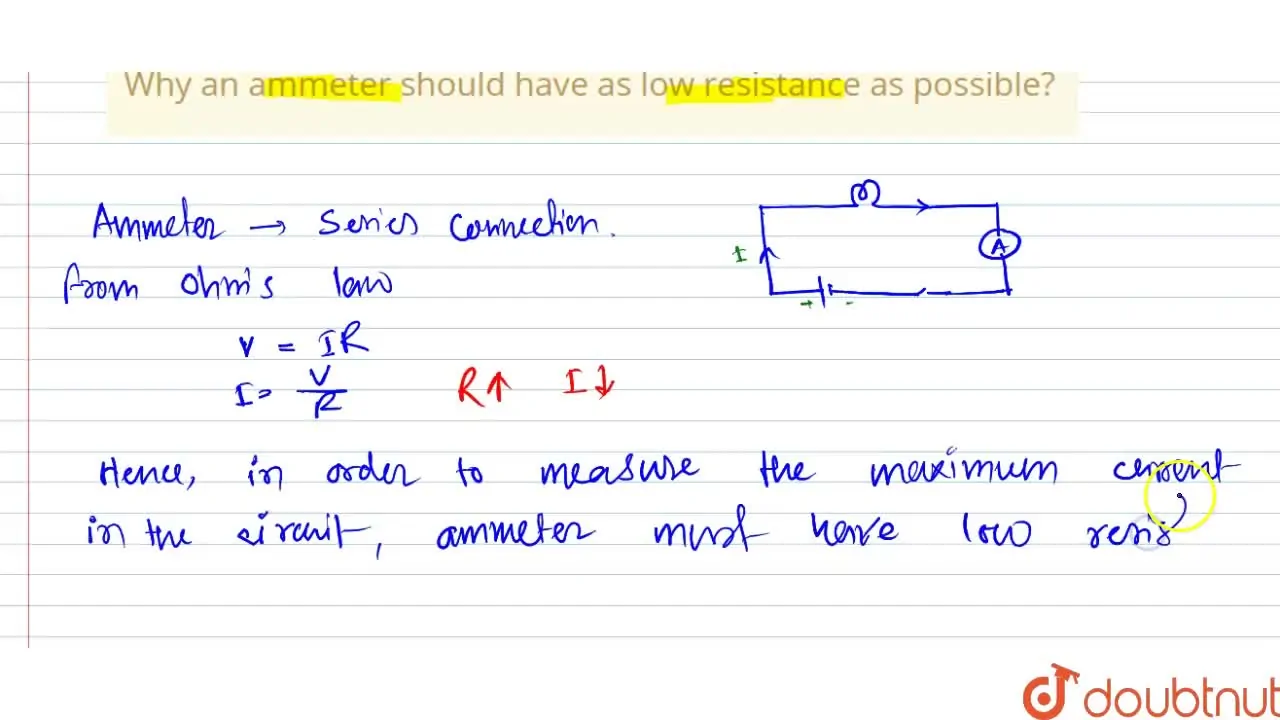 Why an ammeter should have as low resistance as possible?
Ammeter → Series Connection.
from Ohm's law
V = IR
I = V/R R↑ I↓
I
A
+ -
Hence, in order to measure the maximum current
in the circuit, ammeter must have low resis
doubtnut